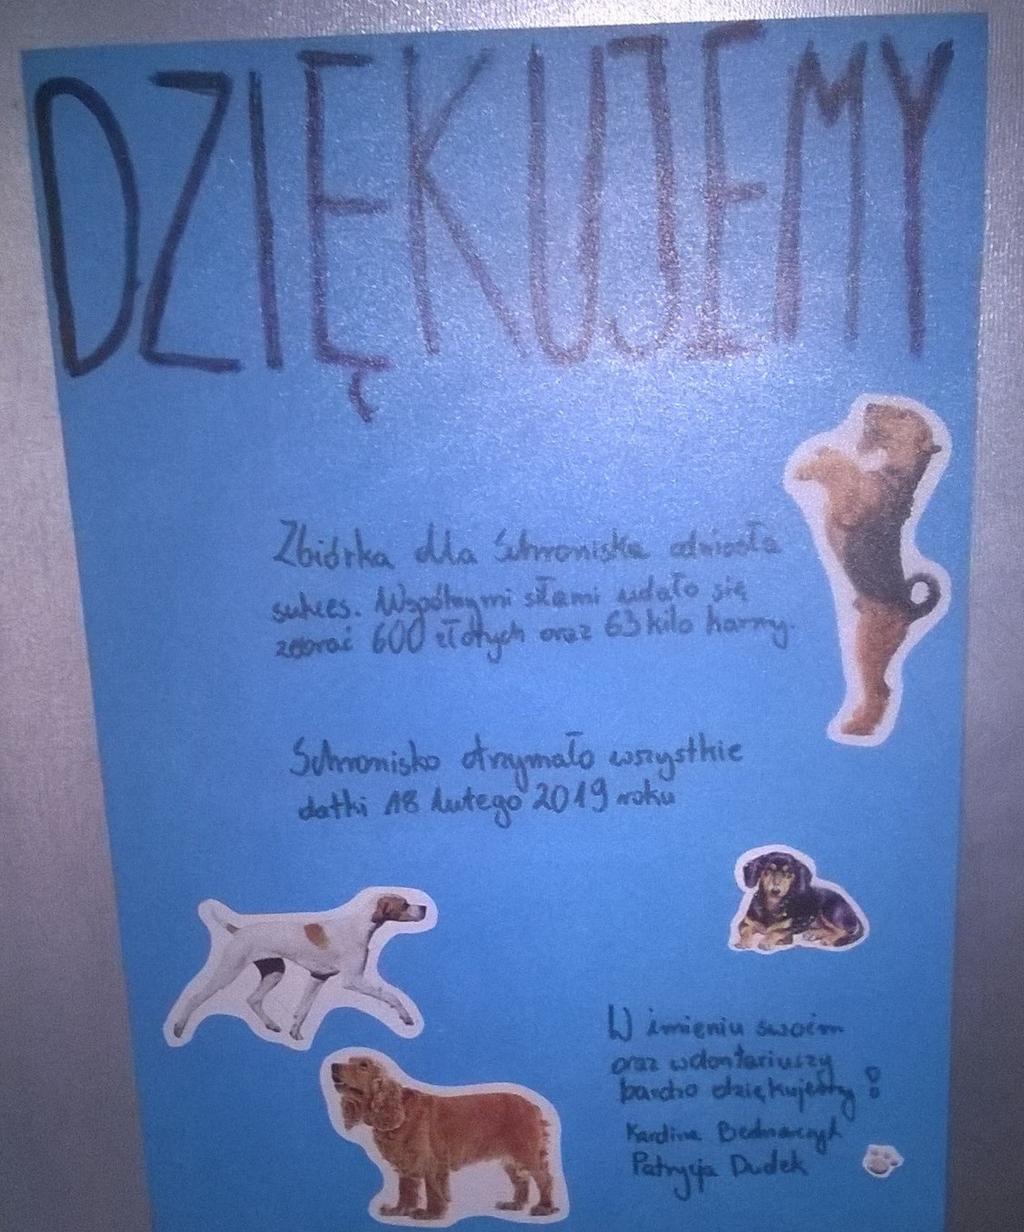 DZIĘKUJEMY
Zbiórka dla Schroniska odniosła
sukces. Wspólnymi siłami udało się
zebrać 600 złotych oraz 63 kilo karmy.
Schronisko otrzymało wszystkie
datki 18 lutego 2019 roku
W imieniu swoim
oraz wolontariuszy
bardzo dziękujemy!
Karolina Bednarczyk
Patrycja Dudek